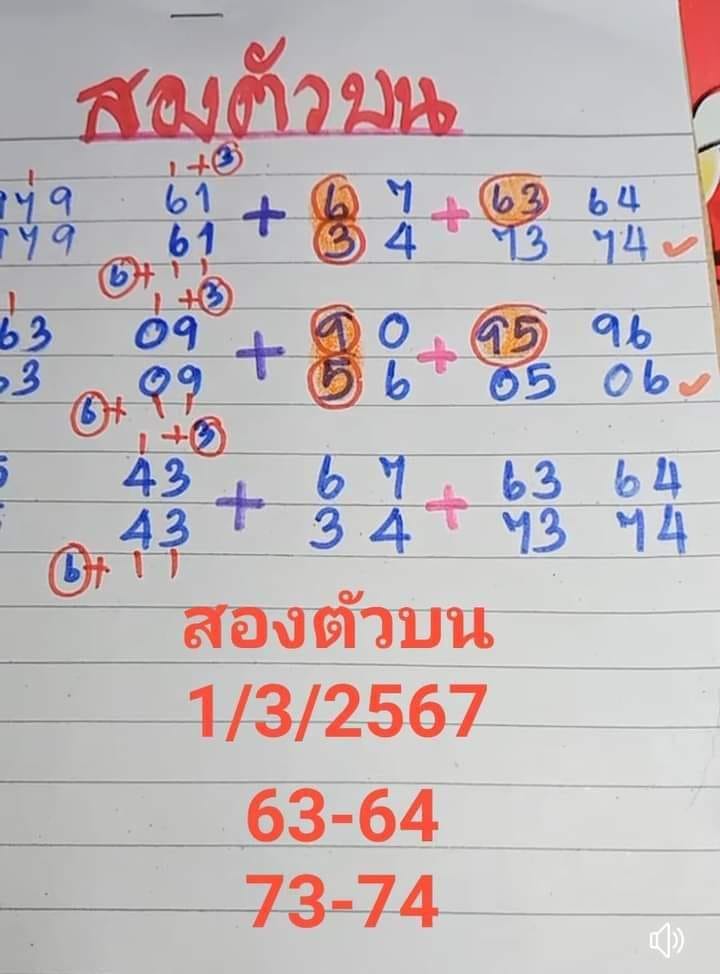 สองตัวบน
1 1+3
779 61 + 6 7 + 63 64
779 61 3 4 73 74 ✓
6+ 1 1
1 1+3
63 09 + 9 0 + 95 96
63 09 5 6 05 06 ✓
6+ 1 1
1+3
43 + 6 7 + 63 64
43 3 4 73 74
6+ 1 1
สองตัวบน
1/3/2567
63-64
73-74